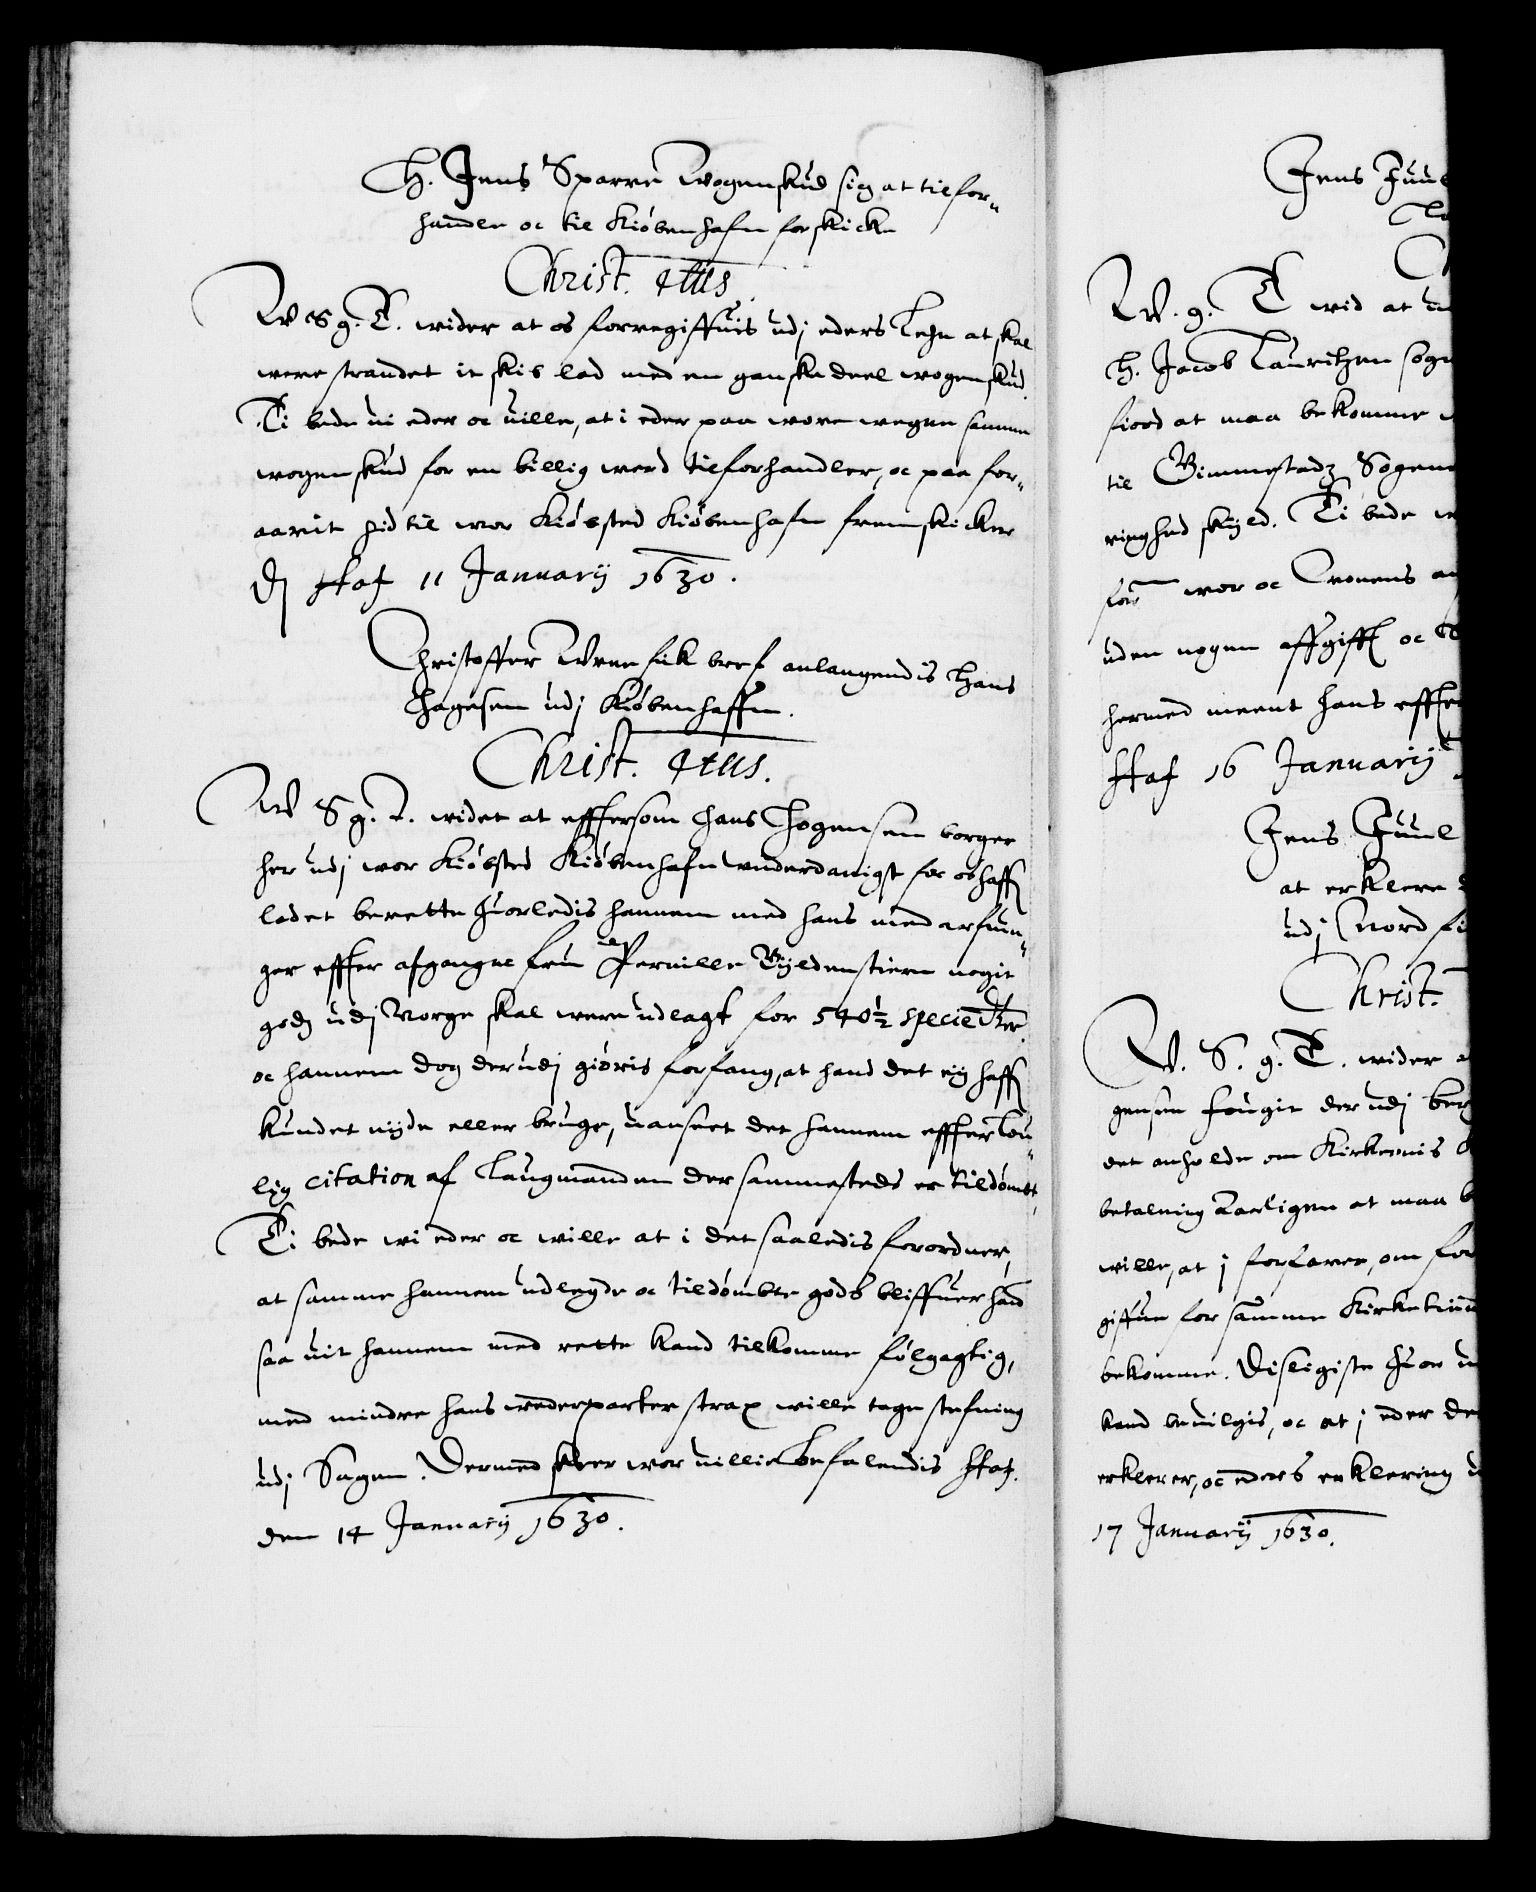 H. Jens Sparre Wogenskud sig at tilfor¬
handle oc til Kiøbenhafn forskicke
Christ. 4tus
W S g. T. wider at os forregiffuis udj eders Lehn at skal
were strandet it skib lad med en ganske deel wogenskud.
Ti bede ui eder oc uille, at i eder paa wore wegne samme
wogenskud for en billig werd tilforhandler, oc paa for¬
aarit hid til wor Kiøbsted Kiøbenhafn fremskicker
Dj Haf 11 Januarij 1630.
Christoffer Urne fick bref anlangendis Hans
Hagesen udj Kiøbenhaffn.
Christ. 4tus.
W S g. T. widet at efftersom Hans Hogensen borger
her udj wor Kiøbsted Kiøbenhafn underdanigst for os haffr
ladet berette huorledis hannem med hans medarfuin¬
ger effter afgangne fru Pernille Gyldenstiern nogit
godz udj Norge skal were udlagt for 540½ specie Dlr
oc hannem dog der udj giøris forfang, at hand det eij haffr
kundet nyde eller bruge, uanseet det hannem effter lou¬
lig citation af Laugmanden der sammesteds er tildømbt,
Ti bede wi eder oc wille at i det saaledis forordner,
at samme hannem udlegde oc tildømbte gods bliffuer hand
saa uit hannem med rette kand tilkomme følgagtig,
med mindre hans wederparter strax wille tage stefning
udj Sagen. Dermed skeer wor uillie Befalendis Haf.
den 14 Januarij 1630.
Jens Juul
W. g. T wid at
H. Jacob Lauritzen sogn
fiord at maa bekomme
til Gimmestadz Sogene
ringhed skyld. Ti bede
for wor oc Cronens
uden nogen affgifft oc
hermed meent hans effter
Haf 16 Januarij
Jens Juul
at erklere
udj Nord fi
Christ.
W. S. g. T. wider
gensen fougit der udj Ber
det anholde om Kirkernis
betalning aarligen at maa
wille, at j forfarer, om for
giffue for samme Kirketiende
bekomme. Disligiste huor
kand beuilgis, oc at j eder
erklerer, oc eders erklering
17 Januarij 1630.